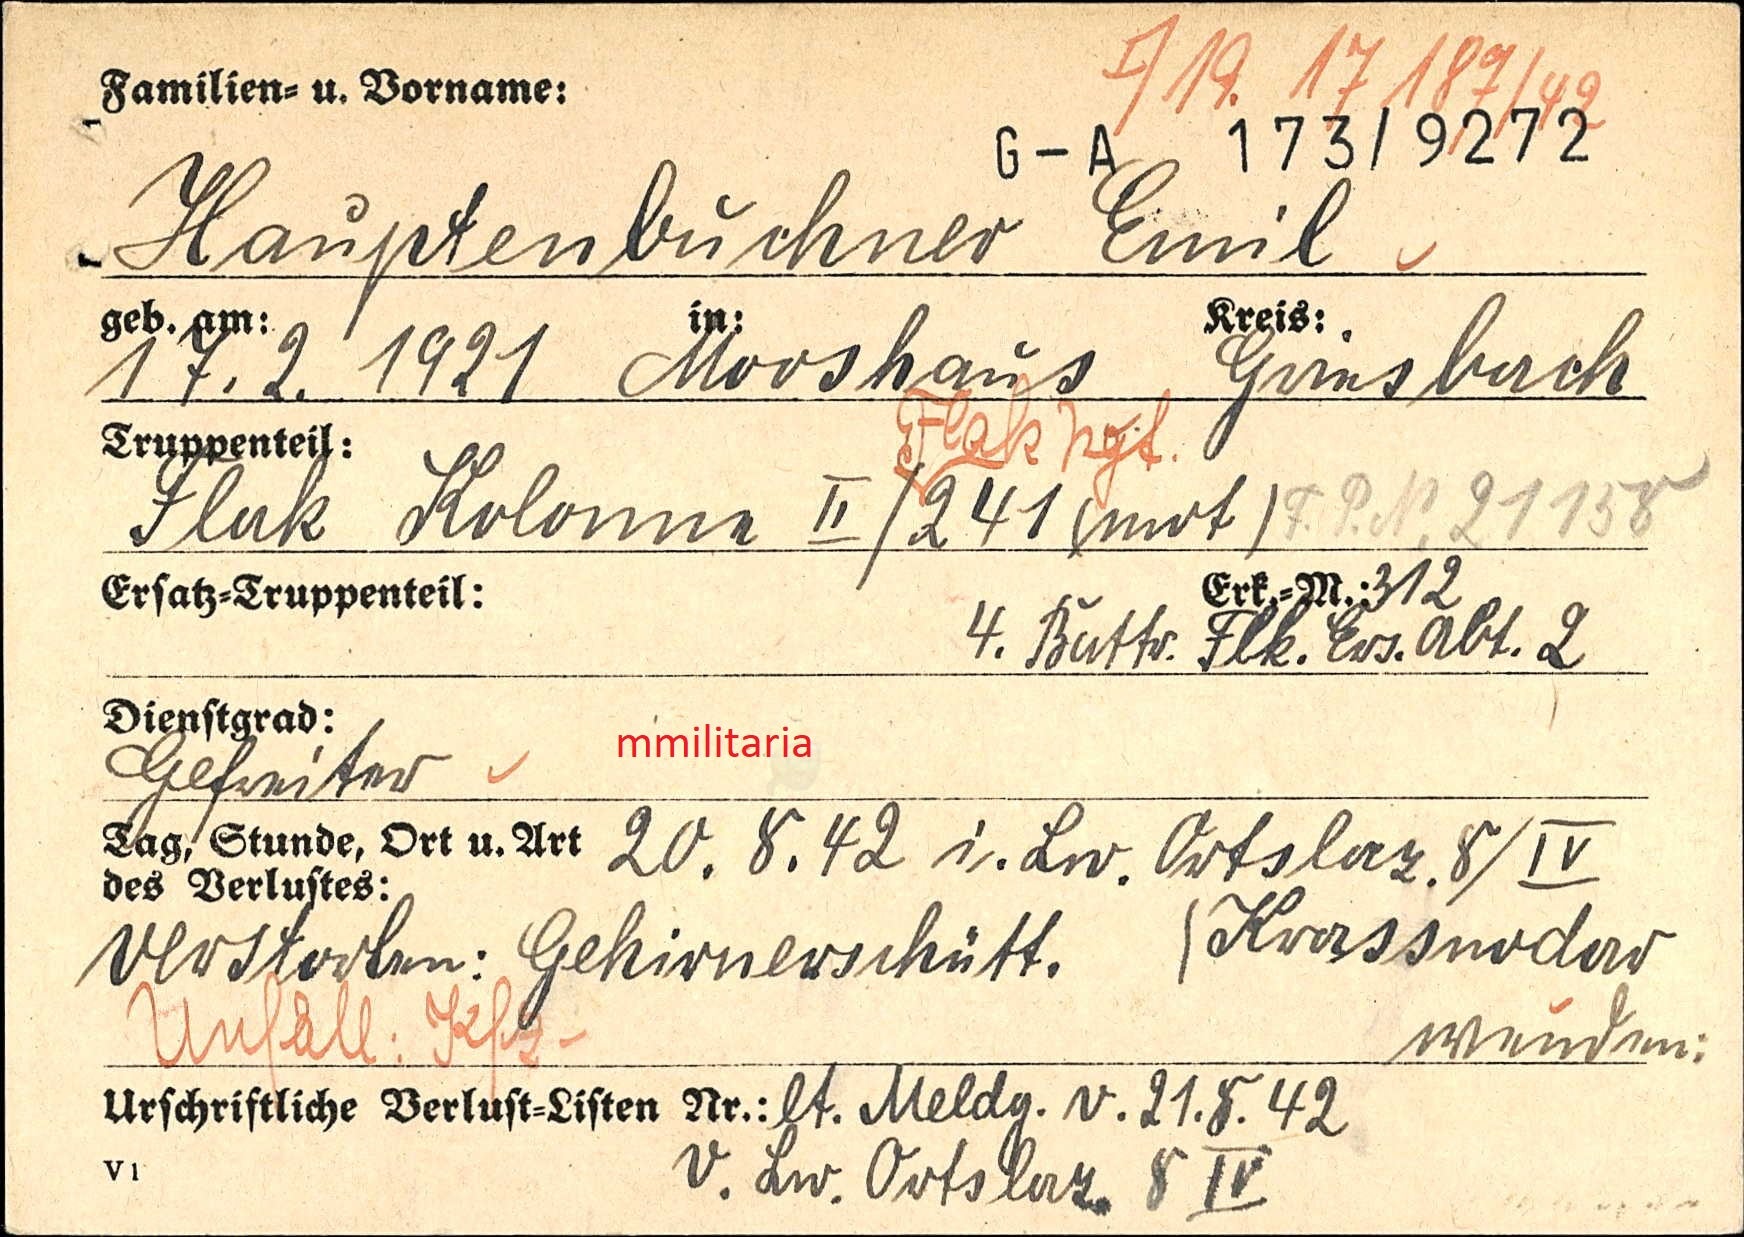 I/19. 17 187/42
Familien- u. Vorname:
G-A 173/9272
Hauptenbuchner Emil
geb. am: in: Kreis:
17. 2. 1921 Mooshaus Griesbach
Flak Rgt.
Truppenteil:
Flak Kolonne II/241 (mot) F.P.N. 21158
Ersatz-Truppenteil: Erk.-M.: 312
4. Battr. Flk. Ers. Abt. 2
Dienstgrad:
mmilitaria
Gefreiter
Tag, Stunde, Ort u. Art 20. 8. 42 i. Lw. Ortslaz. 8/IV
des Verlustes:
verstorben: Gehirnerschütt. (Krassnodar
Unfall: Kfz-
wenden:
Urschriftliche Verlust-Listen Nr.: lt. Meldg. v. 21. 8. 42
V 1
v. Lw. Ortslaz. 8 IV